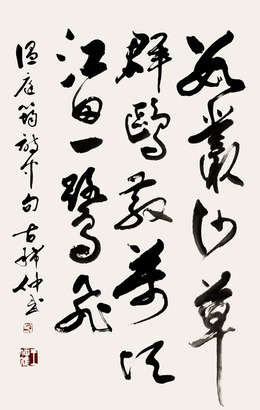 數叢沙草
群鷗散萬頃
江田一鷺飛
溫庭筠詩中句 古稀仲